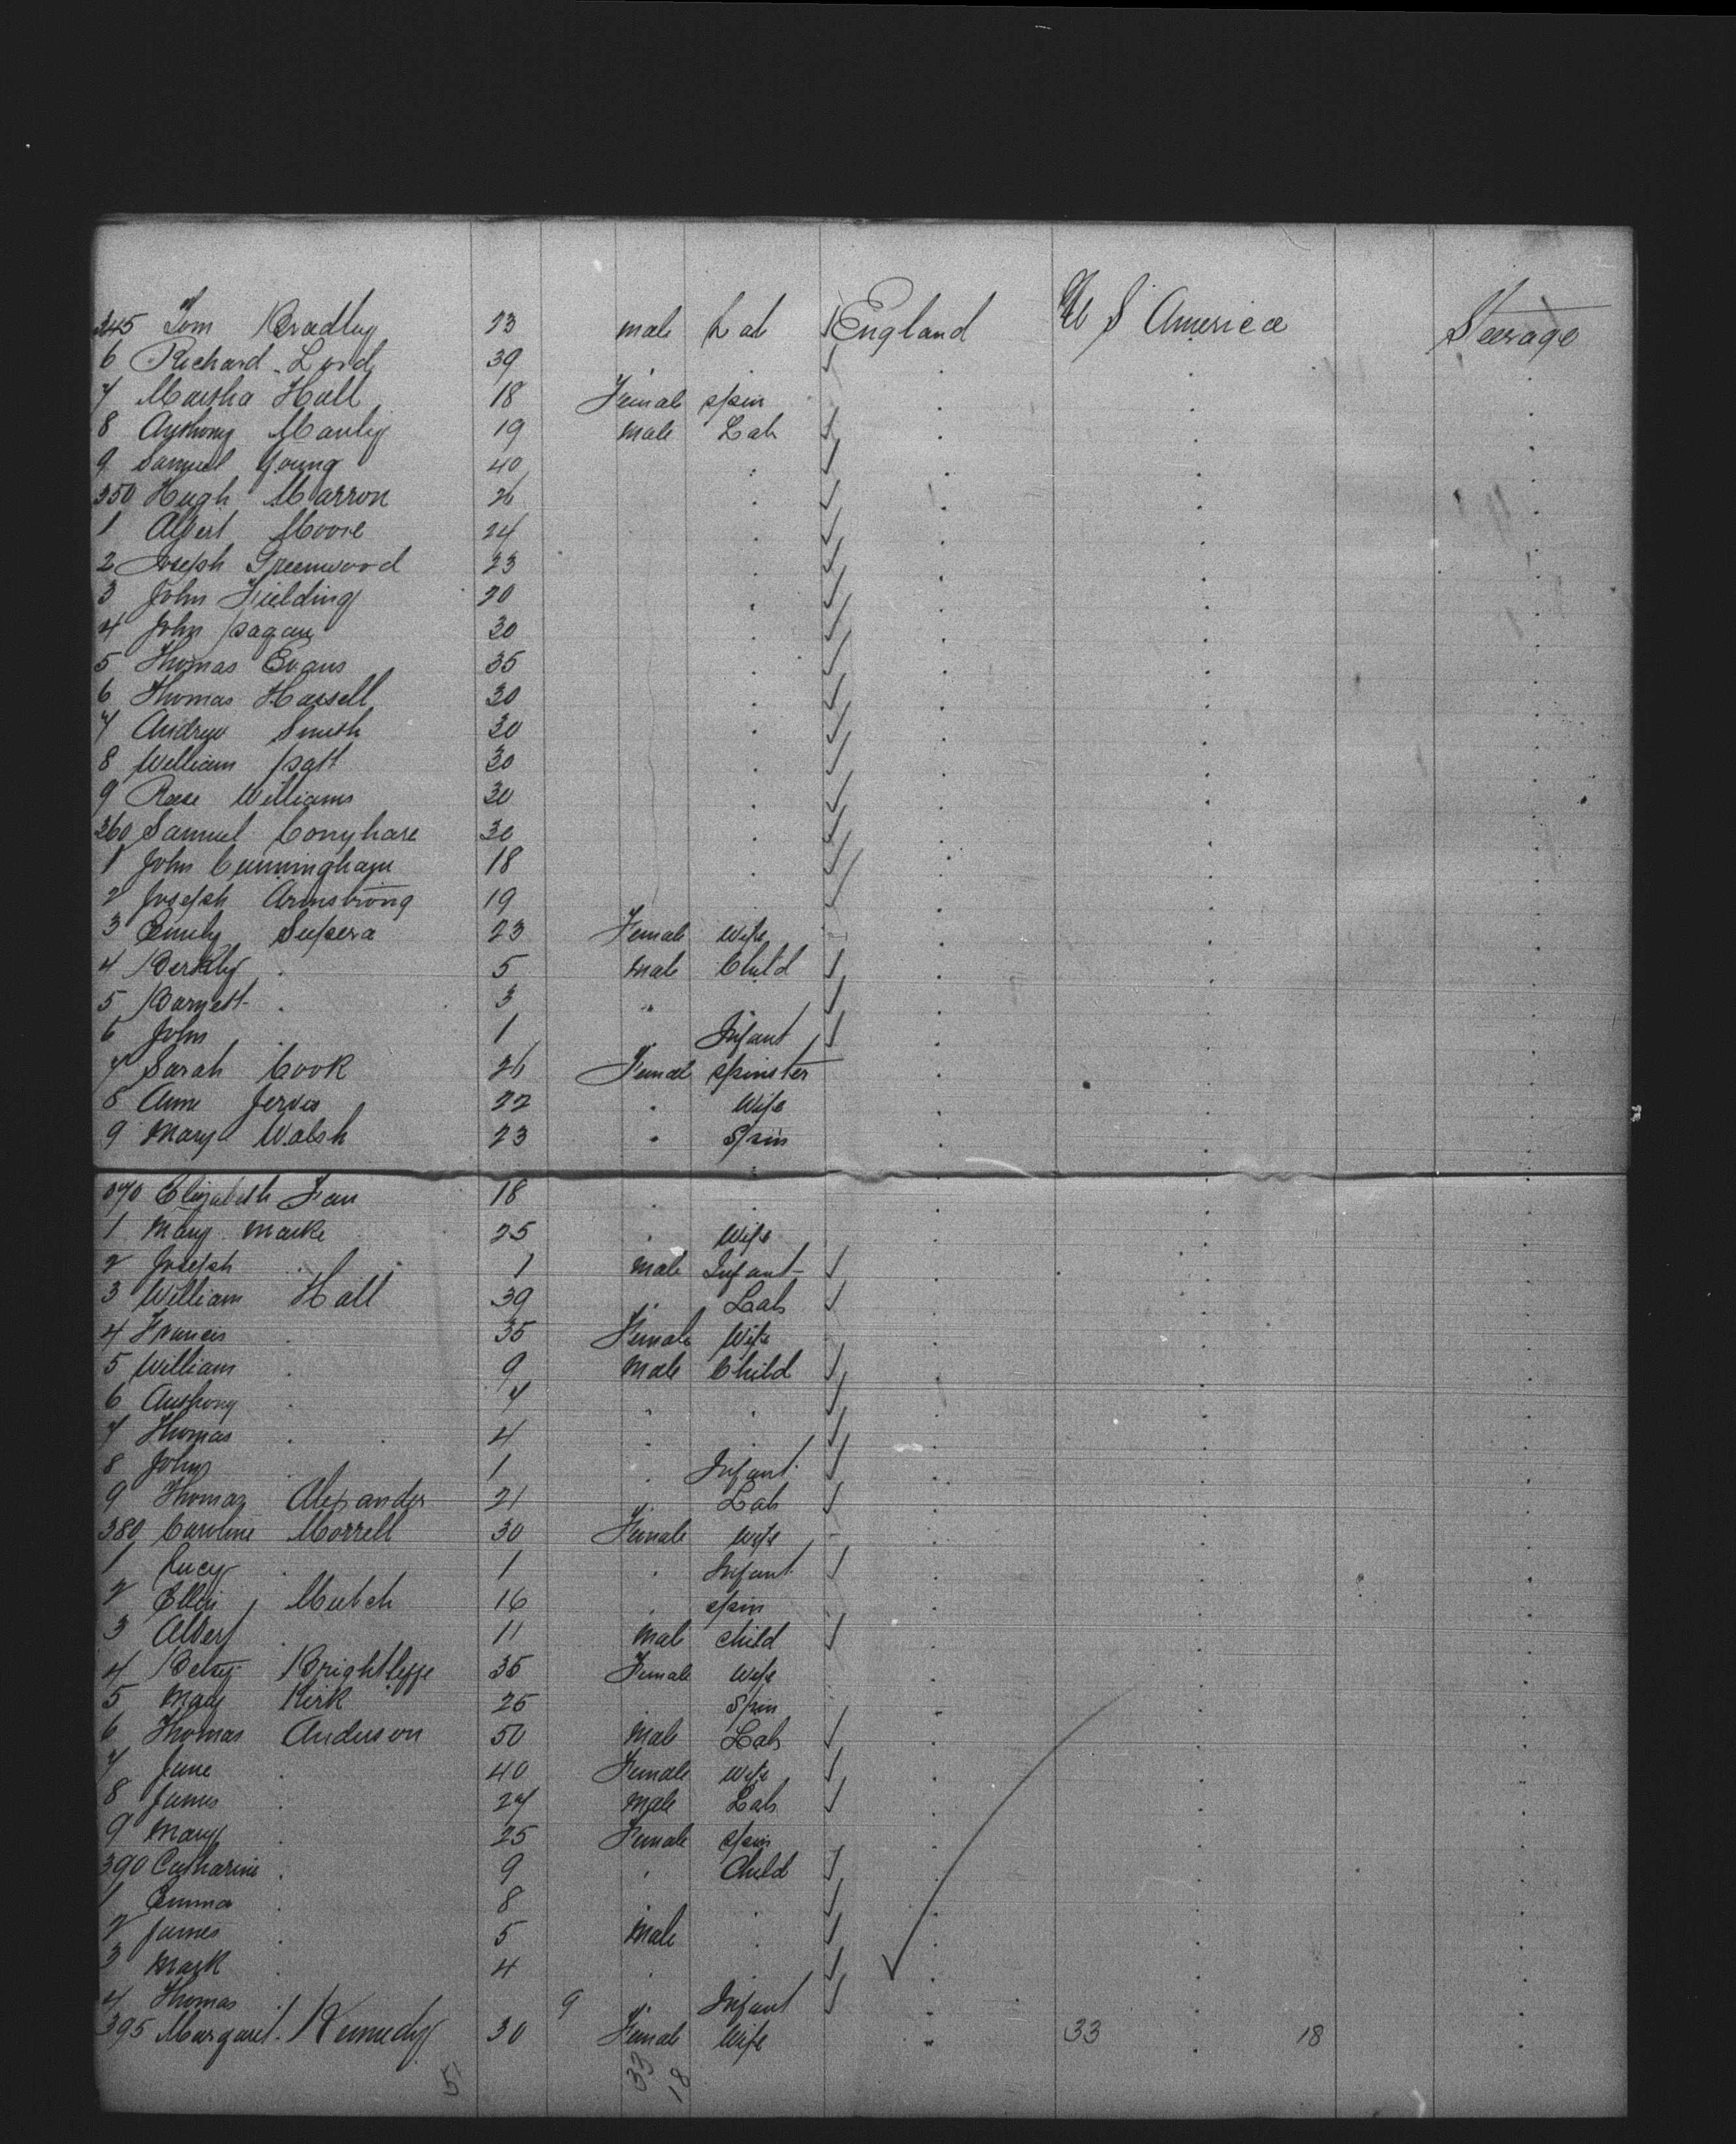 345 Tom Bradley 23 male Lab England U S America Steerage
6 Richard Lord 39
7 Martha Hall 18 Female spin
8 Anthony Manley 19 male Lab
9 Samuel Young 40
350 Hugh Marron 26
1 Albert Moore 24
2 Joseph Greenwood 23
3 John Fielding 20
4 John 30
5 Thomas Evans 35
6 Thomas Hassell 30
7 Andrew Smith 30
8 William 30
9 Williams 30
360 Samuel Conyhare 30
1 John Cunningham 18
2 Joseph Armstrong 19
3 Emily 23 Female Wife
4 5 male Child
5 Barnett 3 "
6 John 1 Infant
7 Sarah Cook 26 Femal spinster
8 Anne Jervis 22 Wife
9 Mary Walsh 23 Spin
370 Elizabeth 18
1 Mary 25 Wife
2 Joseph 1 male Infant
3 William Hall 39 Lab
4 Francis 35 Female Wife
5 William 9 Male Child
6 Anthony 7
7 Thomas 4
8 John 1 Infant
9 Thomas Alexander 21 Lab
380 Caroline Morrell 30 Female Wife
1 Lucy 1 Infant
2 Ellen Mutch 16 spin
3 Albert 11 Male child
4 Betsy 35 Female Wife
5 Mary Kirk 25 Spin
6 Thomas Anderson 50 Male Lab
7 Jane 40 Female Wife
8 James 27 Male Lab
9 Mary 25 Female spin
390 Catharine 9 Child
1 Emma 8
2 James 5 Male
3 Mark 4
4 Thomas 9 Infant
395 Margaret Kennedy 30 Female Wife 33 18
5 33 18